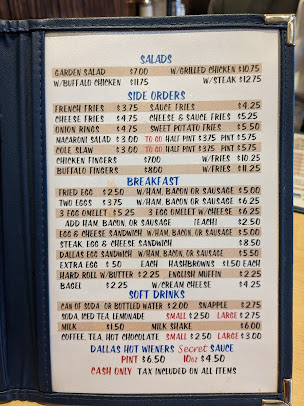 SALADS
GARDEN SALAD $7.00 W/GRILLED CHICKEN $10.75
W/BUFFALO CHICKEN $11.75 W/STEAK $12.75
SIDE ORDERS
FRENCH FRIES $3.75 SAUCE FRIES $4.25
CHEESE FRIES $4.75 CHEESE & SAUCE FRIES $5.25
ONION RINGS $4.75 SWEET POTATO FRIES $5.50
MACARONI SALAD $3.00 TO GO HALF PINT $3.75 PINT $5.75
COLE SLAW $3.00 TO GO HALF PINT $3.75 PINT $5.75
CHICKEN FINGERS $7.00 W/FRIES $10.25
BUFFALO FINGERS $8.00 W/FRIES $11.25
BREAKFAST
FRIED EGG $2.50 W/HAM, BACON OR SAUSAGE $5.00
TWO EGGS $3.75 W/HAM, BACON OR SAUSAGE $6.25
3 EGG OMELET $5.25 3 EGG OMELET W/CHEESE $6.25
ADD HAM, BACON, OR SAUSAGE (EACH) $2.50
EGG & CHEESE SANDWICH W/HAM, BACON, OR SAUSAGE $5.00
STEAK EGG & CHEESE SANDWICH $8.50
DALLAS EGG SANDWICH W/HAM, BACON, OR SAUSAGE $5.50
EXTRA EGG $.50 EACH HASHBROWNS $1.50 EACH
HARD ROLL W/BUTTER $2.25 ENGLISH MUFFIN $2.25
BAGEL $2.25 W/CREAM CHEESE $4.25
SOFT DRINKS
CAN OF SODA OR BOTTLED WATER $2.00 SNAPPLE $2.75
SODA, ICE TEA, LEMONADE SMALL $2.50 LARGE $2.75
MILK $1.50 MILK SHAKE $6.00
COFFEE, TEA, HOT CHOCOLATE SMALL $2.50 LARGE $3.00
DALLAS HOT WIENERS Secret SAUCE
PINT $6.50 10oz $4.50
CASH ONLY TAX INCLUDED ON ALL ITEMS